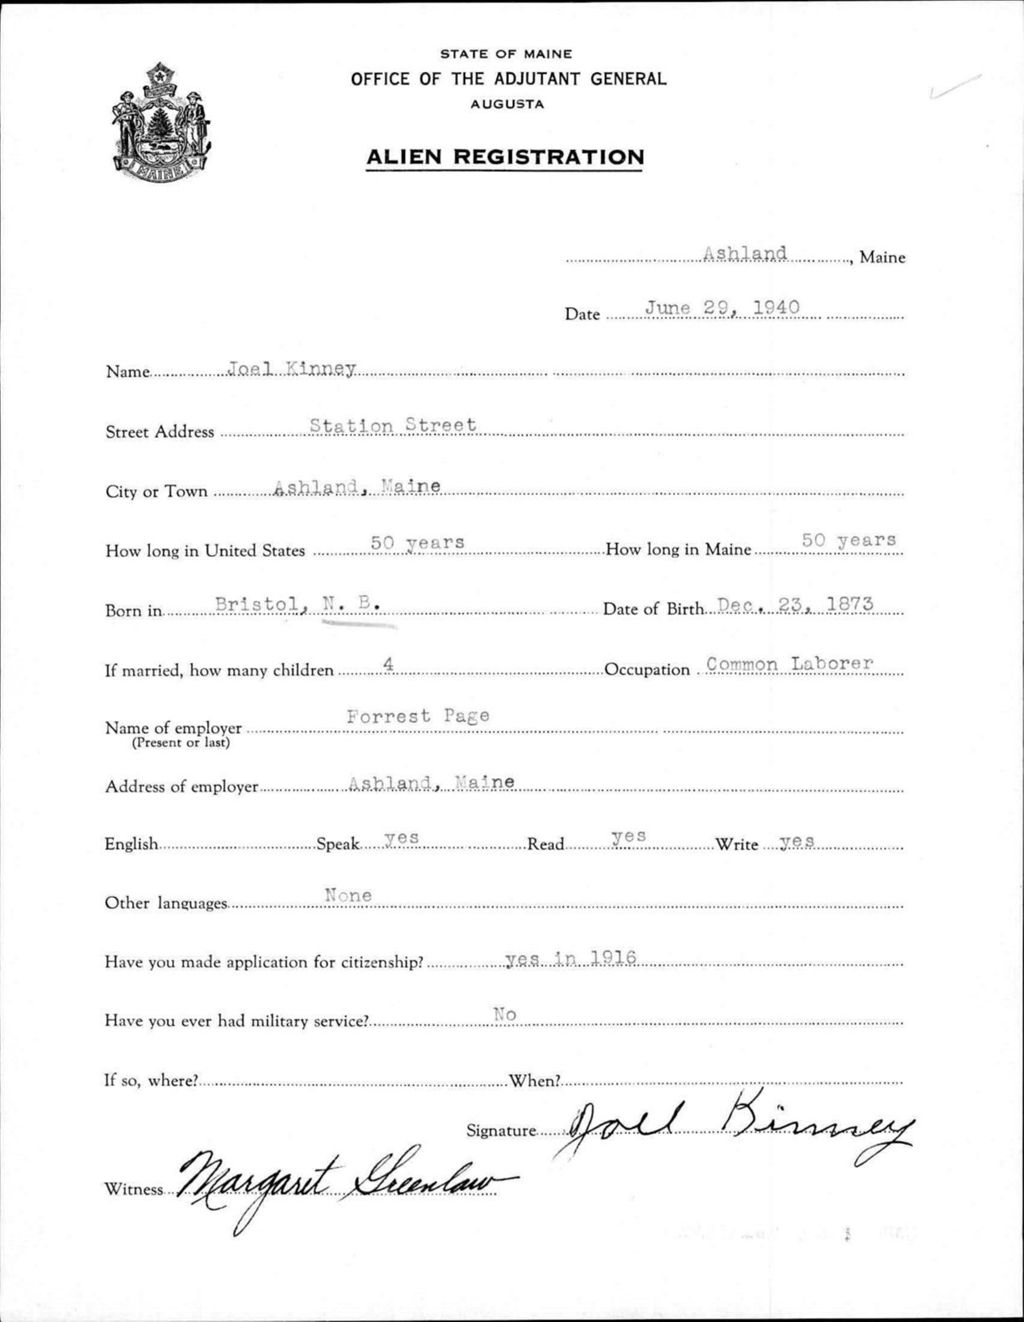 STATE OF MAINE
OFFICE OF THE ADJUTANT GENERAL
AUGUSTA
ALIEN REGISTRATION
MAINE
Ashland, Maine
Date June 29, 1940
Name Joel Kinney
Street Address Station Street
City or Town Ashland, Maine
How long in United States 50 years How long in Maine 50 years
Born in Bristol, N. B. Date of Birth Dec. 23, 1873
If married, how many children 4 Occupation Common Laborer
Name of employer Forrest Page
(Present or last)
Address of employer Ashland, Maine
English Speak yes Read yes Write yes
Other languages None
Have you made application for citizenship? yes in 1916
Have you ever had military service? No
If so, where? When?
Signature Joel Kinney
Witness Margaret Greenlaw